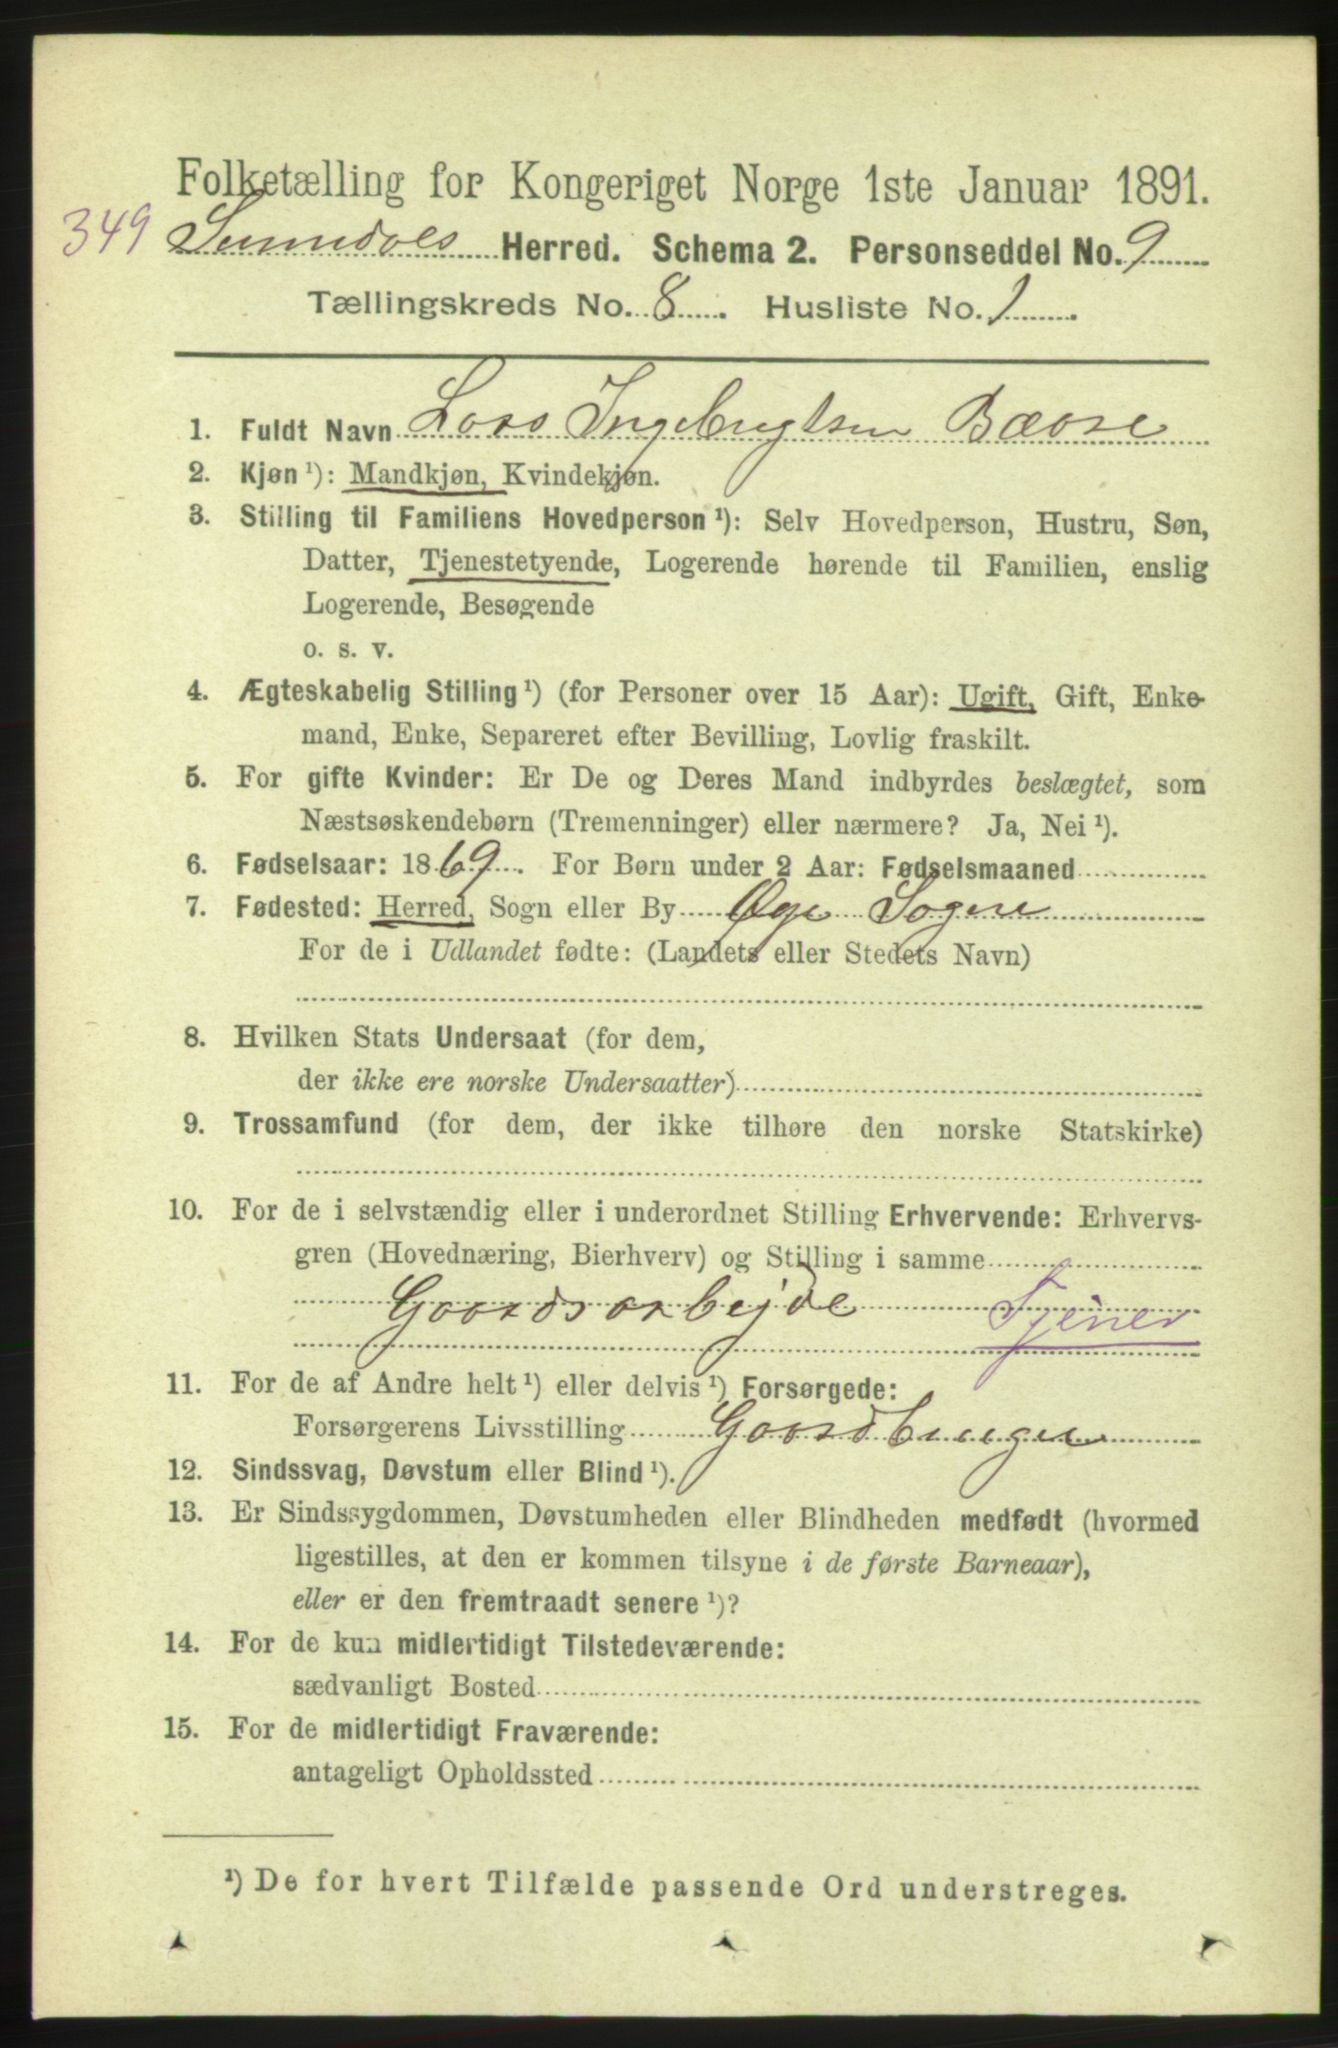 Folketælling for Kongeriget Norge 1ste Januar 1891.
349 Sunndals Herred. Schema 2. Personseddel No. 9
Tællingskreds No. 8. Husliste No. 1.
1. Fuldt Navn Lars Ingebrigtsen Bævre
2. Kjøn ¹): Mandkjøn, Kvindekjøn.
3. Stilling til Familiens Hovedperson ¹): Selv Hovedperson, Hustru, Søn,
Datter, Tjenestetyende, Logerende hørende til Familien, enslig
Logerende, Besøgende
o. s. v.
4. Ægteskabelig Stilling ¹) (for Personer over 15 Aar): Ugift, Gift, Enke-
mand, Enke, Separeret efter Bevilling, Lovlig fraskilt.
5. For gifte Kvinder: Er De og Deres Mand indbyrdes beslægtet, som
Næstsøskendebørn (Tremenninger) eller nærmere? Ja, Nei ¹).
6. Fødselsaar: 1869. For Børn under 2 Aar: Fødselsmaaned
7. Fødested: Herred, Sogn eller By Øye Sogn
For de i Udlandet fødte: (Landets eller Stedets Navn)
8. Hvilken Stats Undersaat (for dem,
der ikke ere norske Undersaatter)
9. Trossamfund (for dem, der ikke tilhøre den norske Statskirke)
10. For de i selvstændig eller i underordnet Stilling Erhvervende: Erhvervs-
gren (Hovednæring, Bierhverv) og Stilling i samme
Gaardsarbejde Tjener
11. For de af Andre helt ¹) eller delvis ¹) Forsørgede:
Forsørgerens Livsstilling Gaardbruger
12. Sindssvag, Døvstum eller Blind ¹).
13. Er Sindssygdommen, Døvstumheden eller Blindheden medfødt (hvormed
ligestilles, at den er kommen tilsyne i de første Barneaar),
eller er den fremtraadt senere ¹)?
14. For de kun midlertidigt Tilstedeværende:
sædvanligt Bosted
15. For de midlertidigt Fraværende:
antageligt Opholdssted
¹) De for hvert Tilfælde passende Ord understreges.